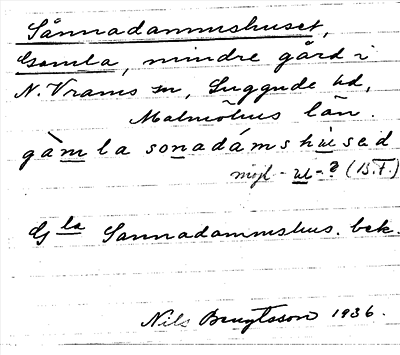 Sånnadammshuset,
Gamla, mindre gård i
N. Vrams sn, Luggude hd,
Malmöhus län.
gàmla sonadáms husəd
möjl - u - ? (B.F.)
G la Sannadammshus. bek.
Nils Bengtsson 1936.